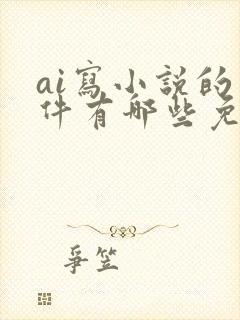 ai寫小說的
件有哪些免
爭笠